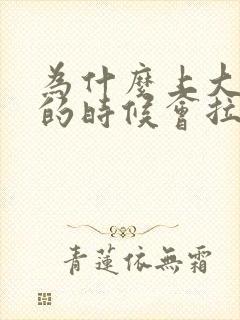 為什麼上大
的時候會拉
青蓮依無霜